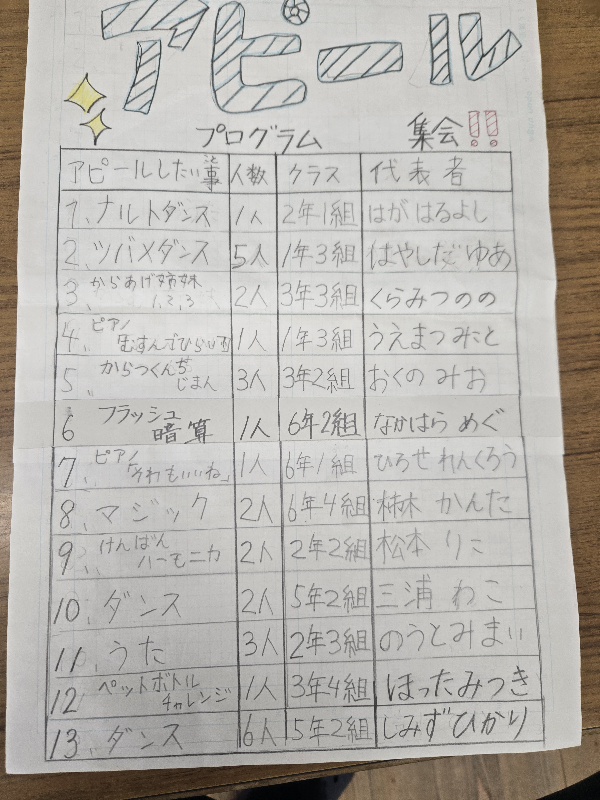 アピール
プログラム 集会!!
アピールしたい事 人数 クラス 代表者
1、ナルトダンス 1人 2年1組 はが はるよし
2、ツバメダンス 5人 1年3組 はやしだ ゆあ
3、からあげ姉妹 1,2,3 2人 3年3組 くらみつのの
4、ピアノ むすんでひらいて 1人 1年3組 うえまつ みこと
5、からつくんち じまん 3人 3年2組 おくの みお
6 フラッシュ 暗算 1人 6年2組 なかはら めぐ
7、ピアノ「それもいいね」 1人 6年1組 ひろせ れんくろう
8、マジック 2人 6年4組 かんた
9、けんばん ハーモニカ 2人 2年2組 松本 りこ
10、ダンス 2人 5年2組 三浦 わこ
11、うた 3人 2年3組 のうとみまい
12 ペットボトル チャレンジ 1人 3年4組 ほったみつき
13、ダンス 6人 5年2組 しみずひかり